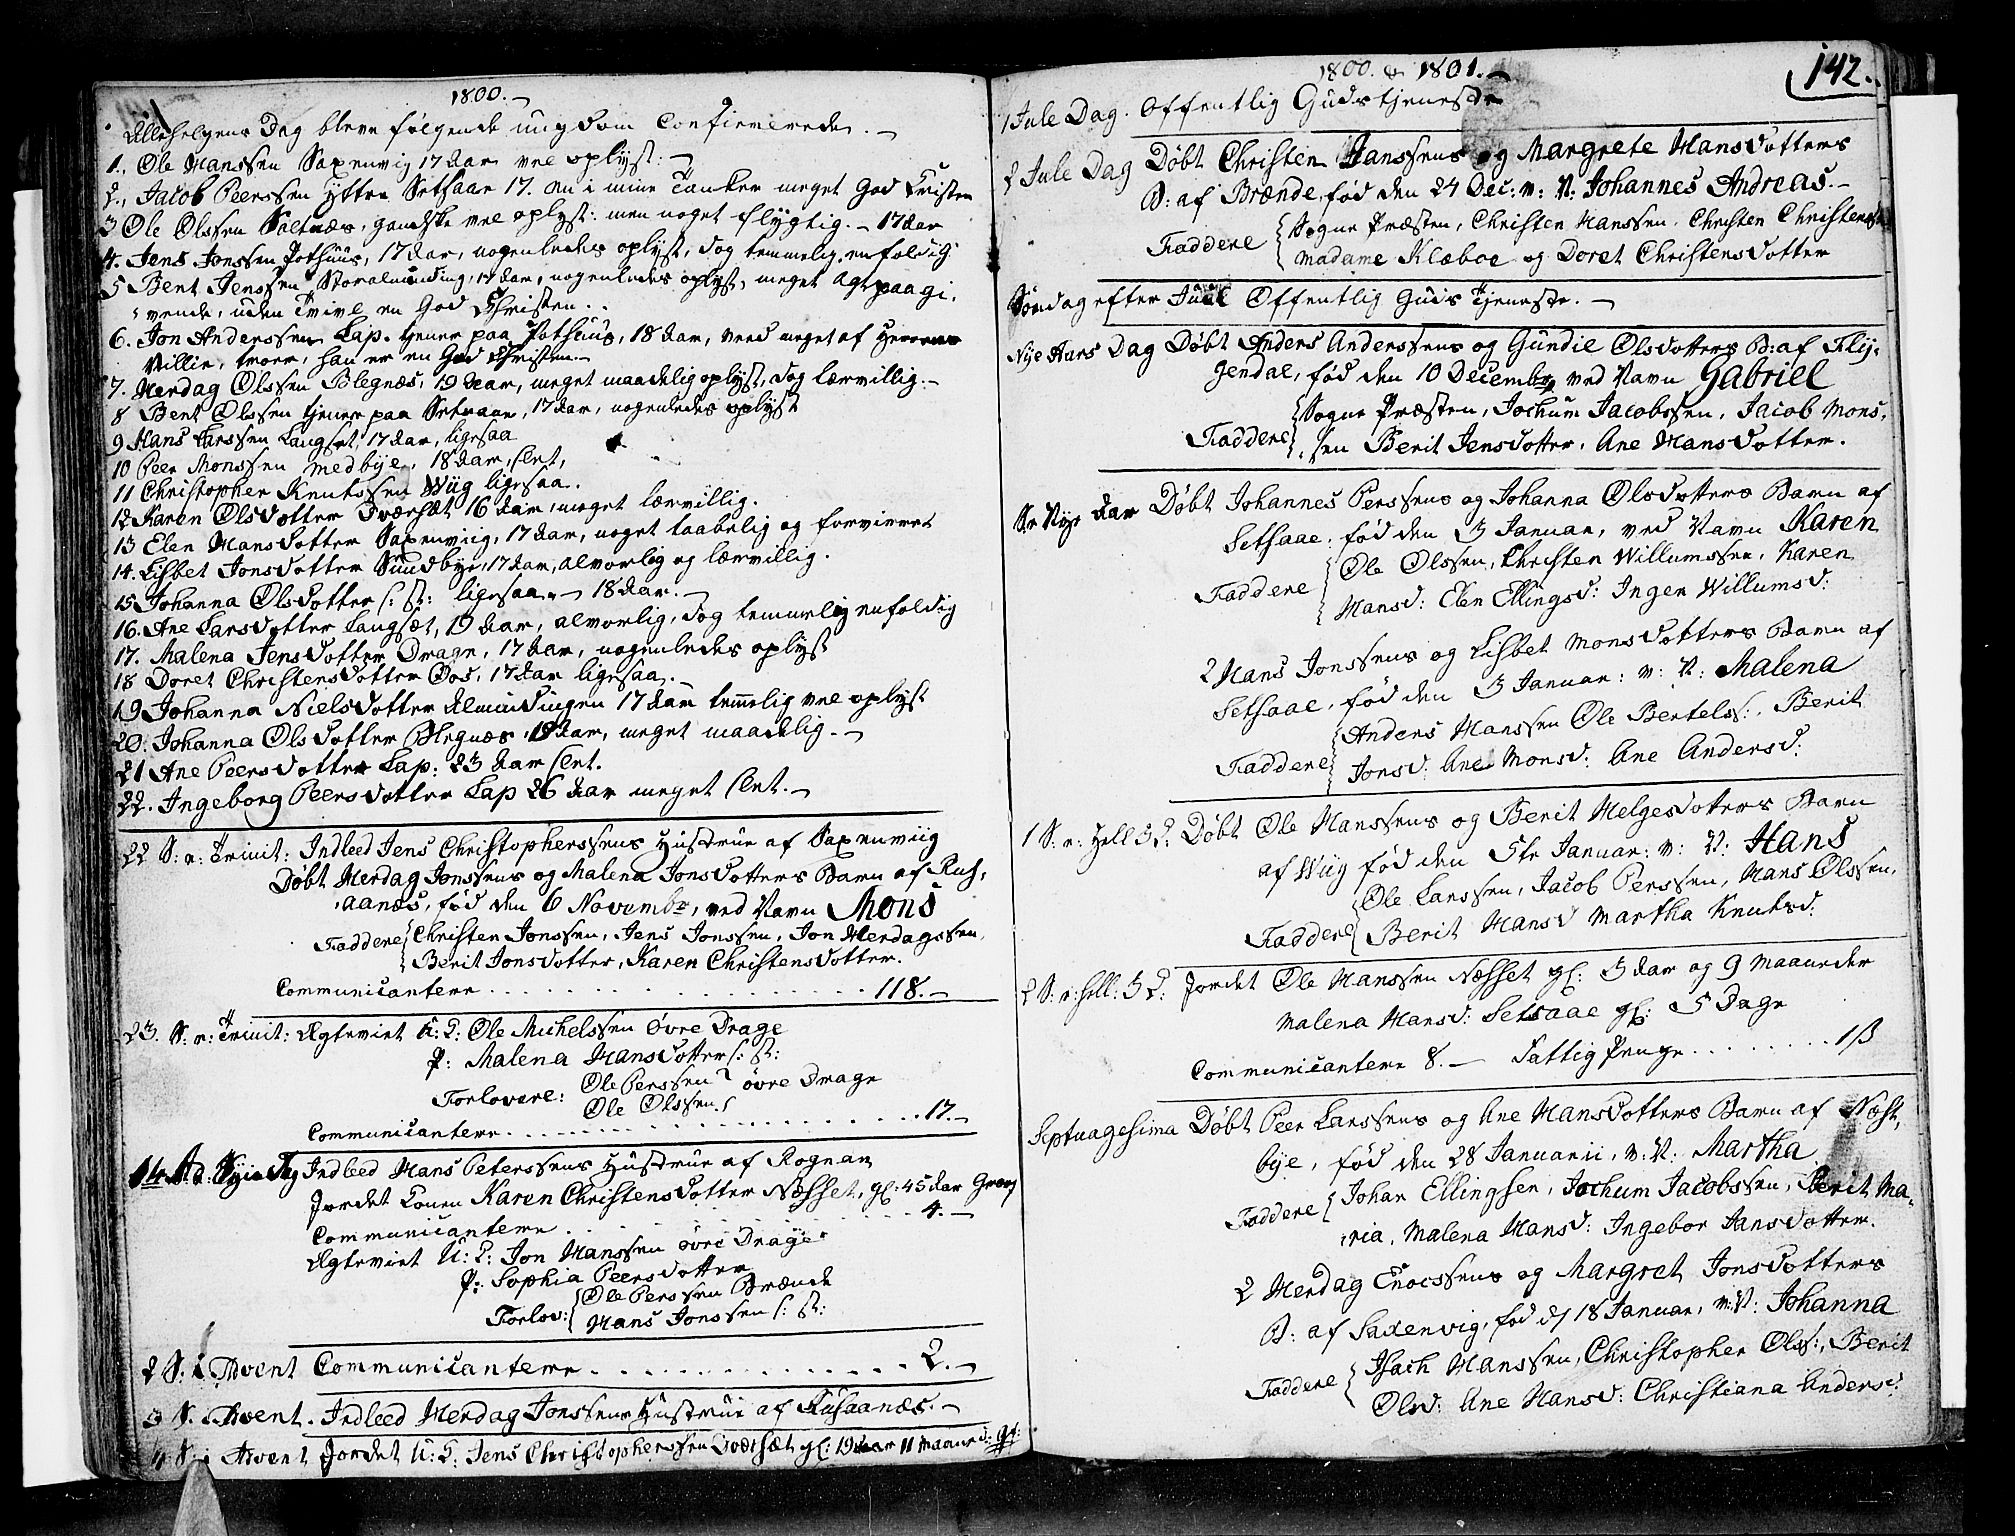 1800.
Allehelgens Dag bleve følgende ungdom Confirmerede. —
1., Ole Hanssen Saxenvig 17 Aar vel oplyst: —
2., Jacob Peerssen Yttre Setsaae 17. en i mine Tanker meget God Christen
3 Ole Olssen Saltnæs, gandske vel oplyst: men noget flygtig. — 17 Aar
4. Jens Jonssen Pothuus, 17 Aar, nogenledes oplyst, dog temmelig enfoldig
5 Bent Jenssen Storalmending, 17 Aar, nogenledes oplyst, meget Agtpaagi,
vende, uden Tvivl en God Christen.
6. Jon Anderssen Lap. tjener paa Pothuus, 18 Aar, veed meget af Herrens
Villie, troer, han er en God Christen. —
7. Herdag Olssen Blegnæs, 19 Aar, meget maadelig oplyst, dog lærvillig. —
8 Bent Olssen tjener paa Setsaae, 17 Aar, nogenledes oplyst
9 Hans Larssen Langset, 17 Aar, ligesaa
10 Peer Monssen Medbye, 18 Aar, slet,
11 Christopher Knutssen Wiig ligesaa.
12 Karen Olsdotter Dværset 16 Aar, meget lærvillig.
13 Elen Hansdotter Saxenviig, 17 Aar, noget taabelig og forvirret
14. Lisbet Jonsdotter Sundbye, 17 Aar, alvorlig og lærvillig.
15 Johanna Olsdotter s: st: ligesaa. — 18 Aar. —
16. Ane Larsdotter Langset, 19 Aar, alvorlig, dog temmelig enfoldig
17. Malena Jensdotter Drage, 17 Aar, nogenledes oplyst
18 Doret Christensdotter Øod, 17 Aar ligesaa. —
19 Johanna Nielsdotter Almindingen 17 Aar temmelig vel oplyst
20: Johanna Olsdotter Blegnæs, 19 Aar, meget maadelig. —
21 Ane Peersdotter Lap: 23 Aar slet.
22. Ingeborg Peersdotter Lap 26 Aar meget slet. —
22 S: e: Trinit: Indleed Jens Christopherssens Hustrue af Saxenviig
Døbt Herdag Jonssens og Malena Jonsdotters Barn af Rus,
aanæs, fød den 6 Novembr, ved Navn Mons
Faddere Christen Jonssen, Jens Jonssen, Jon Herdagssen,
Berit Jonsdotter, Karen Christensdotter.
Communicantere . . . . . . 118. —
23. S: e: Trinit: Ægteviet K: T: Ole Michelssen Øvre Drage
P: Malena Hansdotter s: st:
Forlovere: Ole Perssen
Ole Olssen. øvre Drage
Communicantere . . . . . . 17. —
Indleed Hans Peterssens Hustrue af Rognan
Jordet Konen Karen Christensdotter Næsset, gl: 45 Aar
Communicantere . . . . . . 4. —
Ægteviet U: K: Jon Hanssen øvre Drage
P: Sophia Peersdotter
Forlov: Ole Perssen Brænde
Hans Jonssen s: st:
2 S: i Advent Communicantere . . . . . . 2. —
3 S. i Advent. Indleed Herdag Jonssens Hustrue af Rusaanæs. —
4 S: i Advent Jordet U: K: Jens Christopherssen gl: 19 Aar 11 Maaned:
142.
1800. & 1801. —
1 Jule Dag. Offentlig Gudstjeneste
2 Jule Dag Døbt Christen Hanssens og Margrete Hansdotters
B: af Brænde, fød den 24 Dec: v: N: Johannes Andreas. —
Faddere Sogne Præsten, Christen Hanssen. Christen Christensen
Madame Klæboe og Doret Christensdotter
Søndag efter Juul Offentlig Guds Tjeneste. —
Nye Aars Dag Døbt Anders Anderssens og Gundie Olsdotters B: af Flij,
gendal, fød den 10 Decembr, ved Navn Gabriel
Faddere Sogne Præsten, Jochum Jacobssen, Jacob Mons,
sen Berit Jensdotter, Ane Hansdotter.
S e Nye Aar Døbt Johannes Perssens og Johanna Olsdotters Barn af
Setsaae, fød den 3 Januar, ved Navn Karen
Faddere Ole Olssen, Christen Willumssen, Karen
Hansd: Elen Ellingsd: Ingen Willumsd:
2 Hans Jonssens og Lisbet Monsdotters Barn af
Setsaae, fød den 3 Januar: v: N: Malena
Faddere Anders Hanssen Ole Bertels:, Berit
Jonsd: Ane Monsd: Ane Andersd:
1 S: e: Hell 3 K: Døbt Ole Hanssens og Berit Helgesdotters Barn
af Wiig fød den 5te Januar: v: N: Hans
Faddere Ole Larssen, Jacob Perssen, Hans Olssen,
Berit Hansd Martha Knutsd:
2 S: e: hell: 3 K: Jordet Ole Hanssen Næsset gl: 3 Aar og 9 Maaneder
Malena Hansd: Setsaae gl: 5 Dage
Communicantere 8. — Fattig Penge . . . . . . 1 ß
Septuagesima Døbt Peer Larssens og Ane Hansdotters Barn af Næst,
bye, fød den 28 Januarii, v: N: Martha
Faddere Johan Ellingsen, Jochum Jacobssen, Berit Ma,
ria, Malena Hansd: Ingebor Jansdotter.
2 Herdag Enocssens og Margret Jonsdotters
B: af Saxenvig, fød d 18 Januar, v: N: Johanna
Faddere Isach Hanssen, Christopher Ols:, Berit
Olsd: Ane Hansd: Christiana Andersd: